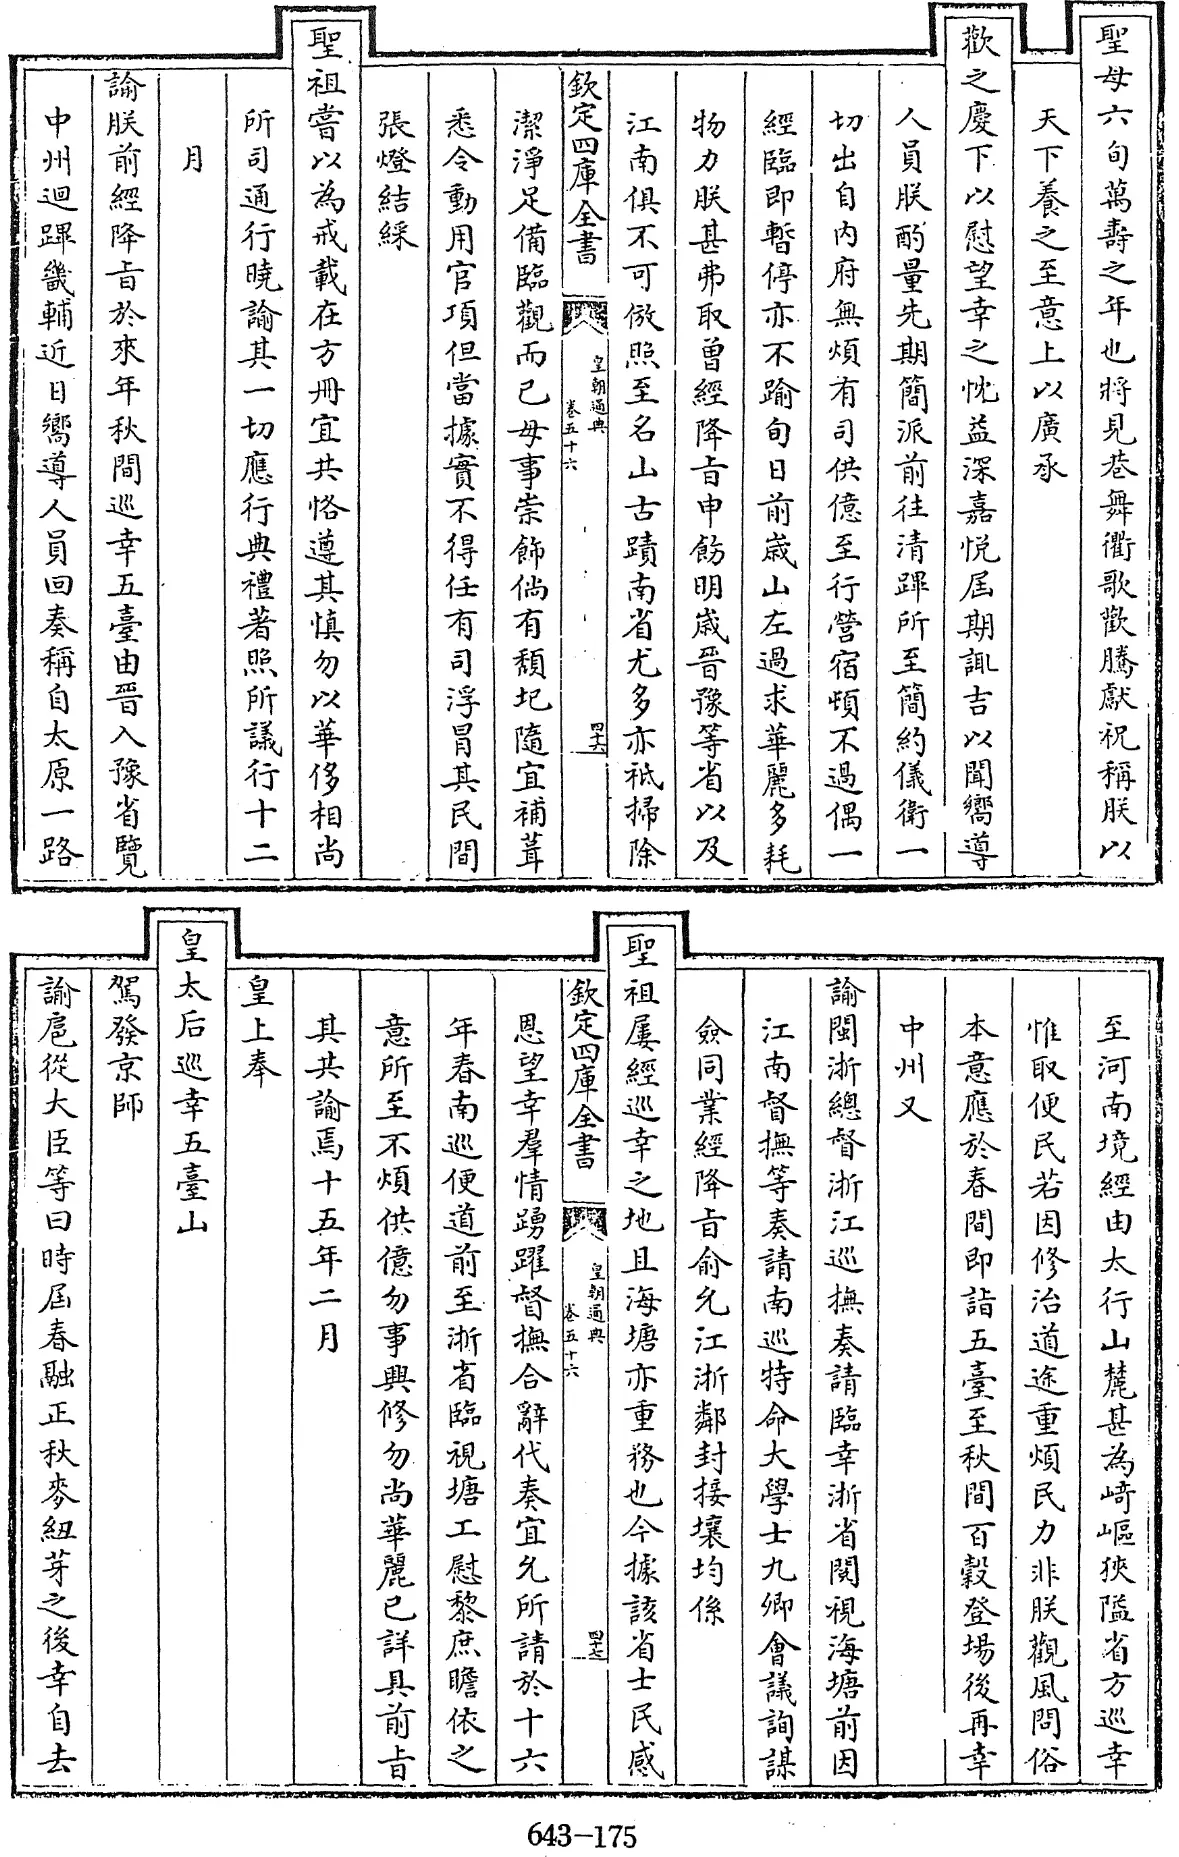 聖母六旬萬壽之年也將見巷舞衢歌歡騰獻祝稱朕以
天下養之至意上以廣承
歡之慶下以慰望幸之忱益深嘉悅屆期諏吉以聞嚮導
人員朕酌量先期簡派前往清蹕所至簡約儀衛一
切出自內府無煩有司供億至行營宿頓不過偶一
經臨即暫停亦不踰旬日前歲山左過求華麗多耗
物力朕甚弗取曾經降旨申飭明歲晉豫等省以及
江南俱不可倣照至名山古蹟南省尤多亦祗掃除
欽定四庫全書
皇朝通典
卷五十六
四十六
潔淨足備臨觀而已毋事崇飾倘有頹圮隨宜補葺
悉令動用官項但當據實不得任有司浮冒其民間
張燈結綵
聖祖嘗以為戒載在方冊宜共恪遵其慎勿以華侈相尚
所司通行曉諭其一切應行典禮著照所議行十二
月
諭朕前經降旨於來年秋間巡幸五臺由晉入豫省覽
中州迴蹕畿輔近日嚮導人員回奏稱自太原一路
至河南境經由太行山麓甚為崎嶇狹隘省方巡幸
惟取便民若因修治道途重煩民力非朕觀風問俗
本意應於春間即詣五臺至秋間百穀登場後再幸
中州又
諭閩浙總督浙江巡撫奏請臨幸浙省閱視海塘前因
江南督撫等奏請南巡特命大學士九卿會議詢謀
僉同業經降旨俞允江浙鄰封接壤均係
聖祖屢經巡幸之地且海塘亦重務也今據該省士民感
欽定四庫全書
皇朝通典
卷五十六
四十七
恩望幸羣情踴躍督撫合辭代奏宜允所請於十六
年春南巡便道前至浙省臨視塘工慰黎庶瞻依之
意所至不煩供億勿事興修勿尚華麗已詳具前旨
其共諭焉十五年二月
皇上奉
皇太后巡幸五臺山
駕發京師
諭扈從大臣等曰時屆春融正秋麥紐芽之後幸自去
643-175